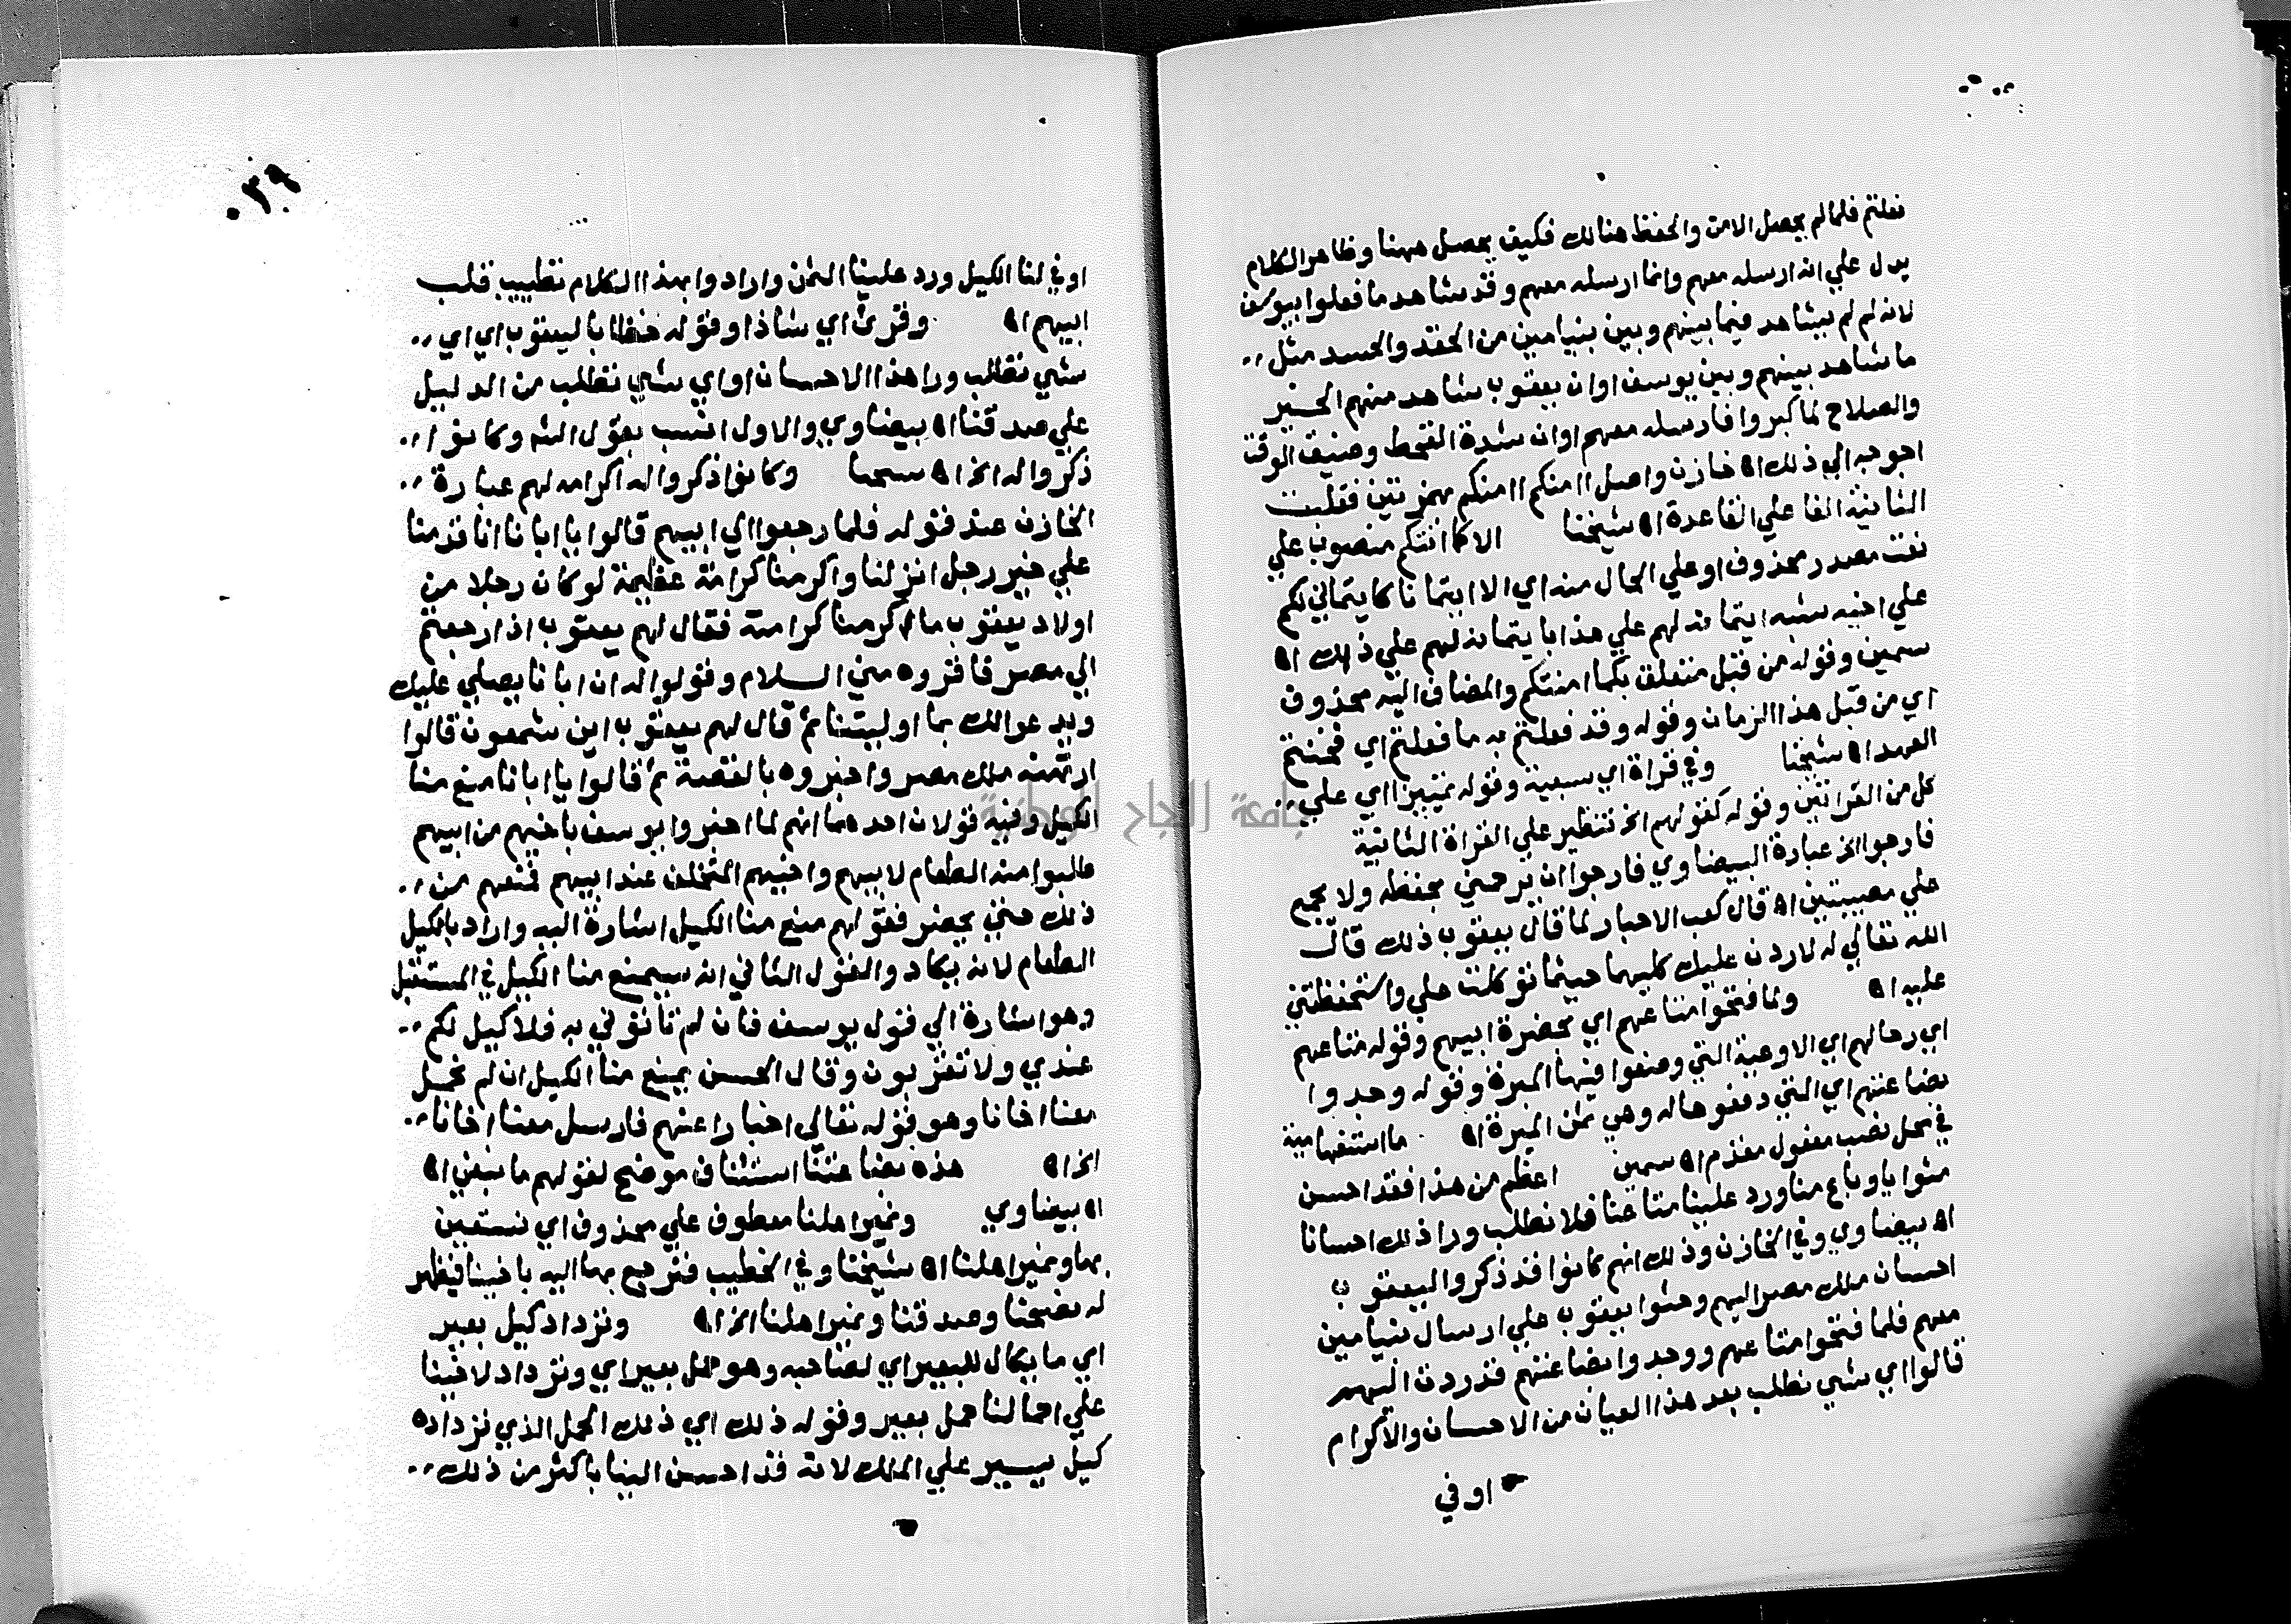 فعلتم فلما لم يحصل الامن والحفظ هنالك فكيف يحصل ههنا وظاهر الكلام
يدل علي انه ارسله معهم وانما ارسله معهم وقد شاهد ما فعلوا بيوسف
لانه لم لم يشاهد فيما بينهم وبين بنيامين من الحقد والحسد مثل
ما شاهد بينهم وبين يوسف او ان يعقوب شاهد منهم الخير
والصلاح لما كبروا فارسله معهم او ان شدة القحط وضيق الوقت
احوجه الي ذلك اه خازن واصل اامنكم اامنكم بهمزتين فقلبت
الثانية الفا علي القاعدة اه شيخنا الا كما امنتكم منصوب علي
نعت مصدر محذوف او علي الحال منه اي الا ايتمانا كايتماني لكم
علي اخيه شبه ايتمانه لهم علي هذا بايتمانه لهم علي ذلك اه
سمين وقوله من قبل متعلق بكما امنتكم والمضاف اليه محذوف
اي من قبل هذا الزمان وقوله وقد فعلتم به ما فعلتم اي فخنتم
العهد اه شيخنا وفي قراة اي سبعية وقوله تمييز اي علي
كل من القراتين وقوله كقولهم الخ تنظير علي القراة الثانية
فارجوا الخ عبارة البيضاوي فارجوا ان يرحمني بحفظه ولا يجمع
علي مصيبتين اه قال كعب الاحبار لما قال يعقوب ذلك قال
الله تعالي له لاردن عليك كليهما حيثما توكلت علي واستحفظتني
عليه اه ولما فتحوا متاعهم اي بحضرة ابيهم وقوله متاعهم
اي رحالهم اي الاوعية التي وضعوا فيها الميرة وقوله وجدوا
بضاعتهم اي التي دفعوها له وهي ثمن الميرة اه ما استفهامية
في محل نصب مفعول مقدم اه سمين اعظم من هذا فقد احسن
مثوانا وباع منا ورد علينا متاعنا فلا نطلب ورا ذلك احسانا
اه بيضاوي وفي الخازن وذلك انهم كانوا قد ذكروا ليعقوب
احسان ملك مصر اليهم وحثوا يعقوب علي ارسال بنيامين
معهم فلما فتحوا متاعهم ووجدوا بضاعتهم قد ردت اليهم
قالوا اي شي نطلب بعد هذا العيان من الاحسان والاكرام
اوفي
٣٩
اوفي لنا الكيل ورد علينا الثمن وارادوا بهذا الكلام تطييب قلب
ابيهم اه وقري اي شاذا وقوله خطابا ليعقوب اي اي
شي نطلب ورا هذا الاحسان او اي شي نطلب من الدليل
علي صدقنا اه بيضاوي والاول انسب بقول الش وكانوا
ذكروا له الخ اه شيخنا وكانوا ذكروا له اكرامه لهم عبارة
الخازن عند قوله فلما رجعوا الي ابيهم قالوا يا ابانا انا قدمنا
علي خير رجل انزلنا واكرمنا كرامة عظيمة لو كان رجلا من
اولاد يعقوب ما اكرمنا كرامته فقال لهم يعقوب اذا رجعتم
الي مصر فاقروه مني السلام وقولوا له ان ابانا يصلي عليك
ويدعو الك بما اوليتنا ثم قال لهم يعقوب اين شمعون قالوا
ارتهنه ملك مصر واخبروه بالقصة ثم قالوا يا ابانا منع منا
الكيل وفيه قولان احدهما انهم لما اخبروا يوسف باخيهم من ابيهم
طلبوا منه الطعام لابيهم واخيهم المتخلف عند ابيهم فمنعهم من
ذلك حتي يحضر فقولهم منع منا الكيل اشارة اليه واراد بالكيل
الطعام لانه يكاد والقول الثاني انه سيمنع منا الكيل في المستقبل
وهو اشارة الي قول يوسف فان لم تاتوني به فلا كيل لكم
عندي ولا تقربون وقال الحسن يمنع منا الكيل ان لم نحمل
معنا اخانا وهو قوله تعالي اخبارا عنهم فارسل معنا اخانا
الخ اه هذه بضاعتنا استئناف موضح لقولهم ما نبغي اه
اه بيضاوي ونمير اهلنا معطوف علي محذوف اي نستعين
بها ونمير اهلنا اه شيخنا وفي الخطيب فنرجع بها اليه باخينا فيظهر
له نصحنا وصدقنا ونمير اهلنا الخ اه ونزداد كيل بعير
اي ما يكال للبعير اي لصاحبه وهو حمل بعير اي ونزداد لاخينا
علي احمالنا حمل بعير وقوله ذلك اي ذلك الحمل الذي نزداده
كيل يسير علي الملك لانه قد احسن الينا باكثر من ذلك
جامعة النجاح الوطنية